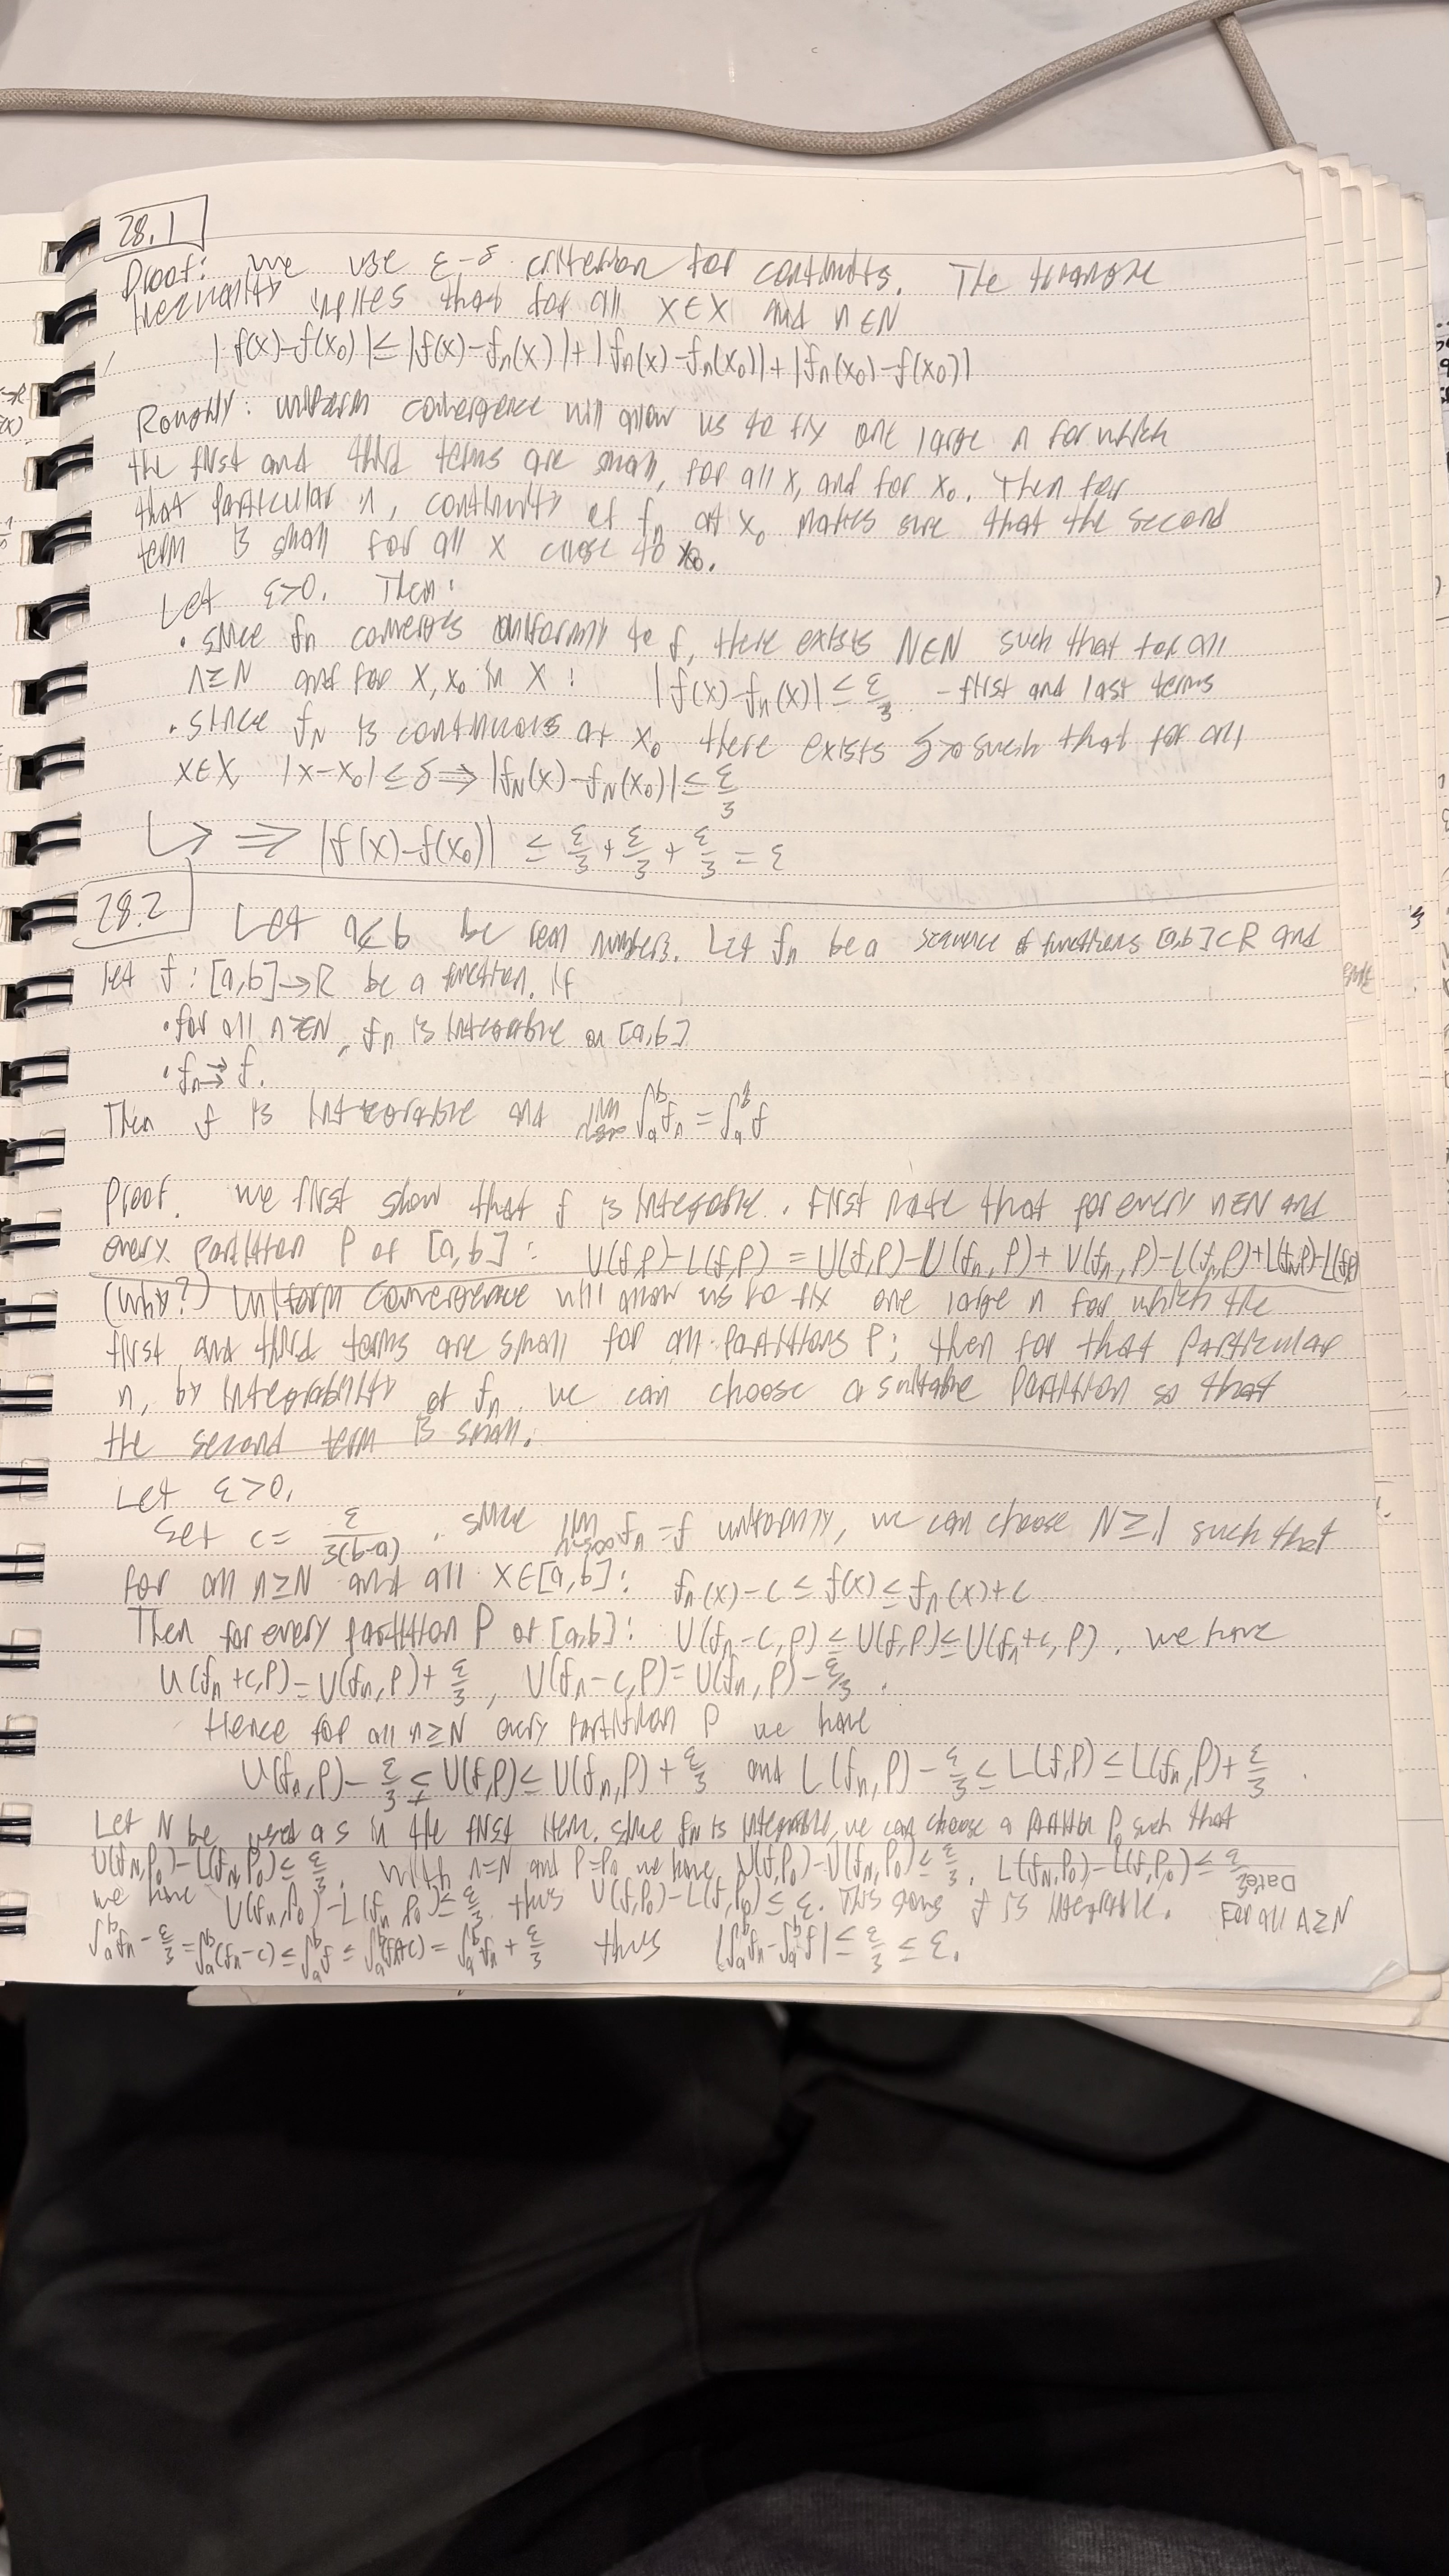 28.1
Proof: we use ε-δ criterion for continuity. The triangle
inequality implies that for all x∈X and n∈N
|f(x)-f(x₀)|≤|f(x)-fₙ(x)|+|fₙ(x)-fₙ(x₀)|+|fₙ(x₀)-f(x₀)|
Roughly: uniform convergence will allow us to fix one large n for which
the first and third terms are small, for all x, and for x₀. Then for
that particular n, continuity of fₙ at x₀ makes sure that the second
term is small for all x close to x₀.
Let ε>0. Then:
• since fₙ converges uniformly to f, there exists N∈N such that for all
n≥N and for x, x₀ in X: |f(x)-fₙ(x)|≤ε/3 - first and last terms
• since f_N is continuous at x₀ there exists δ>0 such that for all
x∈X, |x-x₀|≤δ⇒|f_N(x)-f_N(x₀)|≤ε/3
↳ ⇒ |f(x)-f(x₀)| ≤ ε/3+ε/3+ε/3=ε
28.2 Let a≤b be real numbers. Let fₙ be a sequence of functions [a,b]⊂R and
let f:[a,b]→R be a function. If
• for all n≥N, fₙ is integrable on [a,b]
• fₙ⇉f.
Then f is integrable and lim n→∞ ∫ₐᵇfₙ=∫ₐᵇf
Proof. we first show that f is integrable. First note that for every n∈N and
every partition P of [a,b]: U(f,P)-L(f,P)=U(f,P)-U(fₙ,P)+U(fₙ,P)-L(fₙ,P)+L(fₙ,P)-L(f,P)
(why?) Uniform convergence will allow us to fix one large n for which the
first and third terms are small for all partitions P; then for that particular
n, by integrability of fₙ, we can choose a suitable partition so that
the second term is small.
Let ε>0.
Set c=ε/3(b-a). since lim n→∞ fₙ=f uniformly, we can choose N≥1 such that
for all n≥N and all x∈[a,b]: fₙ(x)-c≤f(x)≤fₙ(x)+c
Then for every partition P of [a,b]: U(fₙ-c,P)≤U(f,P)≤U(fₙ+c,P). we have
U(fₙ+c,P)=U(fₙ,P)+ε/3, U(fₙ-c,P)=U(fₙ,P)-ε/3.
Hence for all n≥N every partition P we have
U(fₙ,P)-ε/3≤U(f,P)≤U(fₙ,P)+ε/3 and L(fₙ,P)-ε/3≤L(f,P)≤L(fₙ,P)+ε/3.
Let N be used as in the first item. since f_N is integrable, we can choose a partition P₀ such that
U(f_N,P₀)-L(f_N,P₀)≤ε/3. With n=N and P=P₀ we have U(f,P₀)-U(f_N,P₀)≤ε/3, L(f_N,P₀)-L(f,P₀)≤ε/3
Date
we have U(fₙ,P₀)-L(fₙ,P₀)≤ε/3 thus U(f,P₀)-L(f,P₀)≤ε. This f is integrable. For all n≥N
∫ₐᵇfₙ-ε/3=∫ₐᵇ(fₙ-c)≤∫ₐᵇf≤∫ₐᵇ(fₙ+c)=∫ₐᵇfₙ+ε/3 thus |∫ₐᵇfₙ-∫ₐᵇf|≤ε/3≤ε.